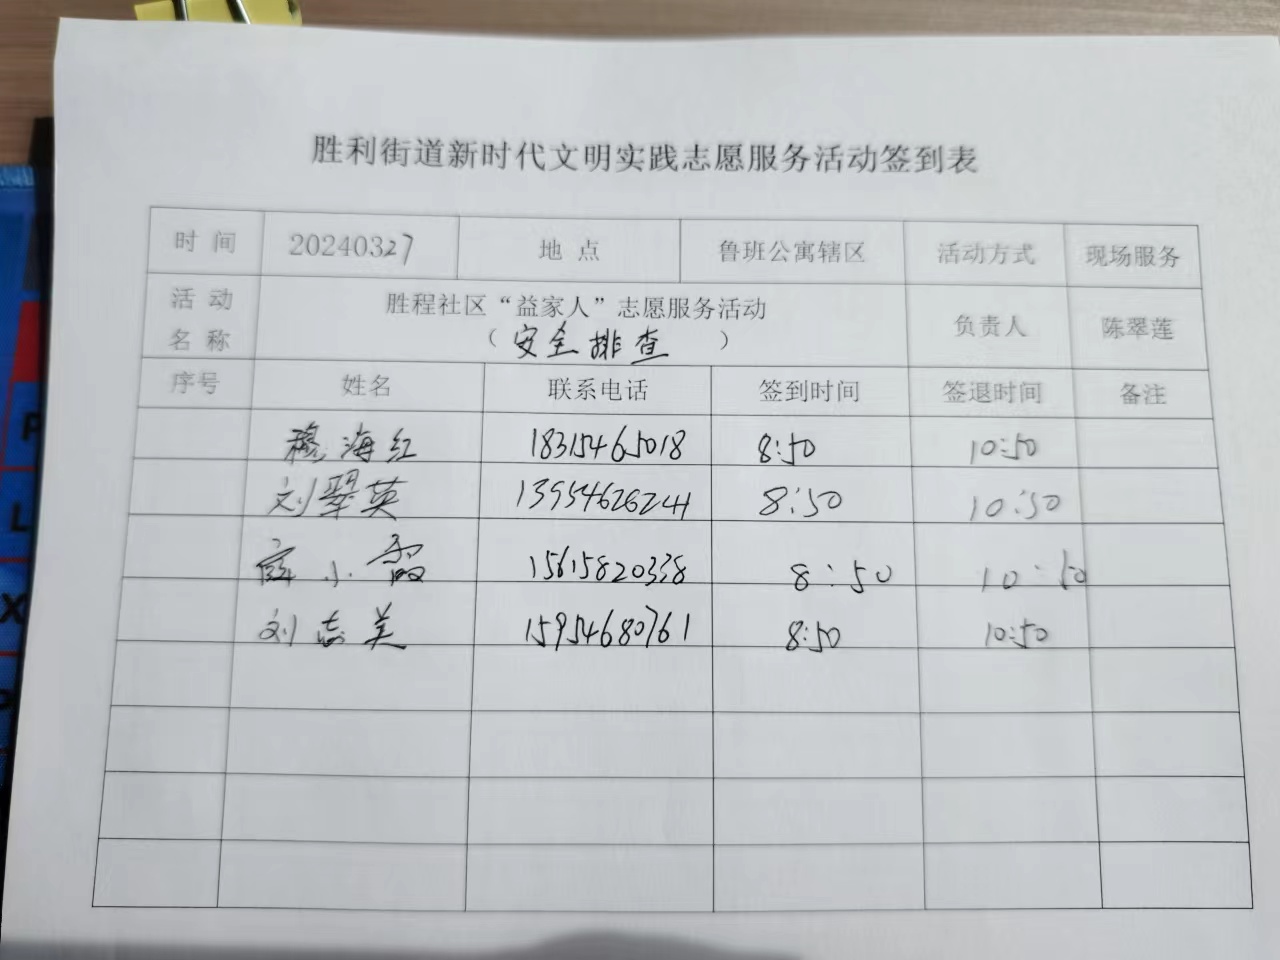 胜利街道新时代文明实践志愿服务活动签到表
时 间 20240327 地 点 鲁班公寓辖区 活动方式 现场服务
活 动 名 称 胜程社区“益家人”志愿服务活动 负责人 陈翠莲
（安全排查）
序号 姓名 联系电话 签到时间 签退时间 备注
穆海红 18315465018 8:50 10:50
刘翠英 13954626241 8:50 10:50
薛小霞 15615820338 8:50 10:50
刘志美 15954680761 8:50 10:50